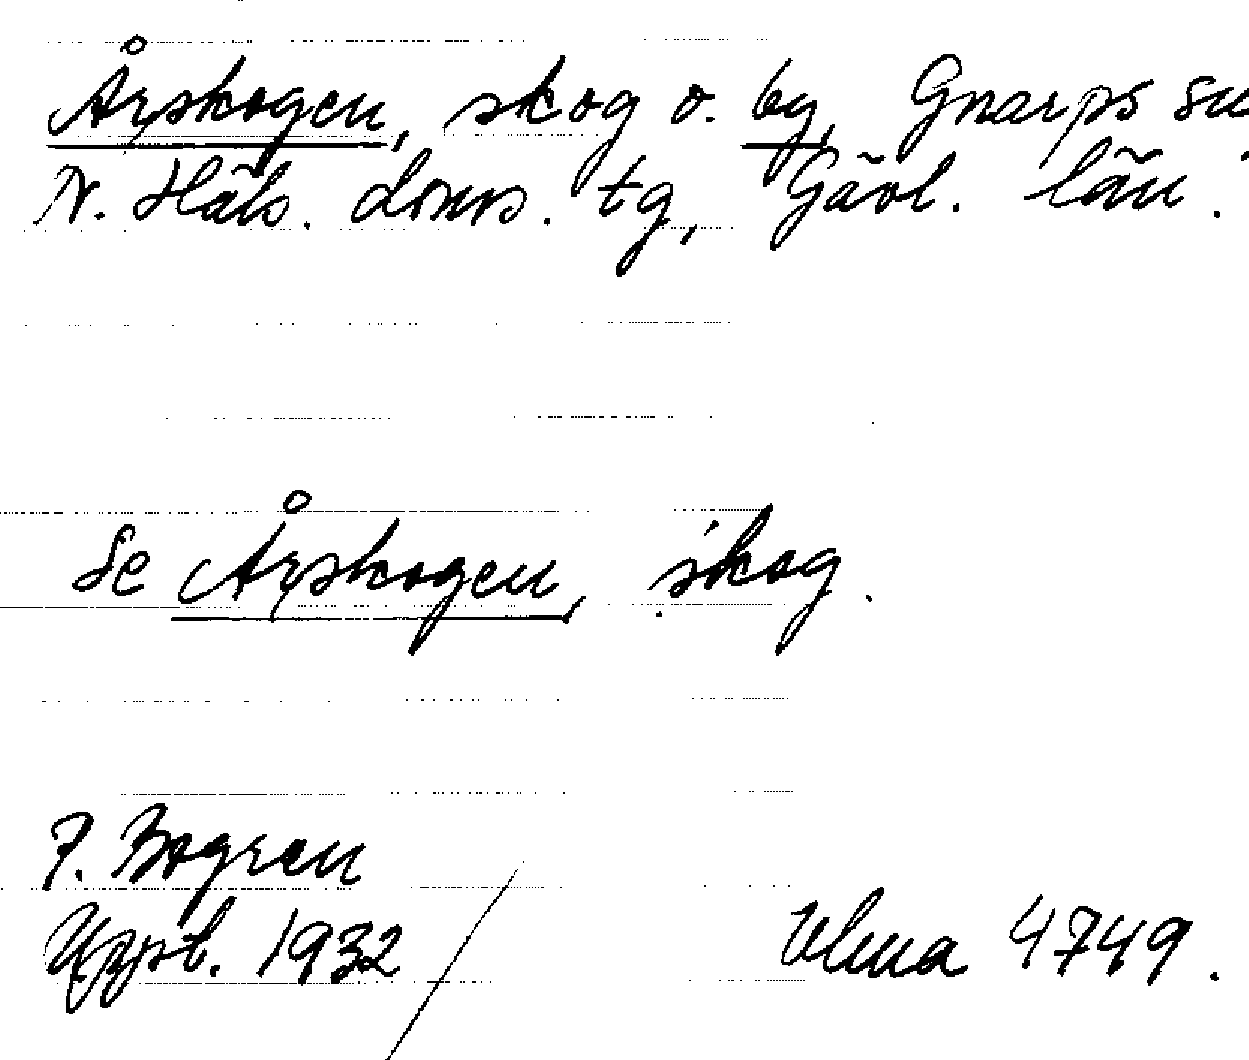 Årskogen, skog o. by, Gnarps sn
N. Häls. doms. tg, Gävl. län.
Se Årskogen, skog.
F. Bogren
Uppt. 1932
Ulma 4749.